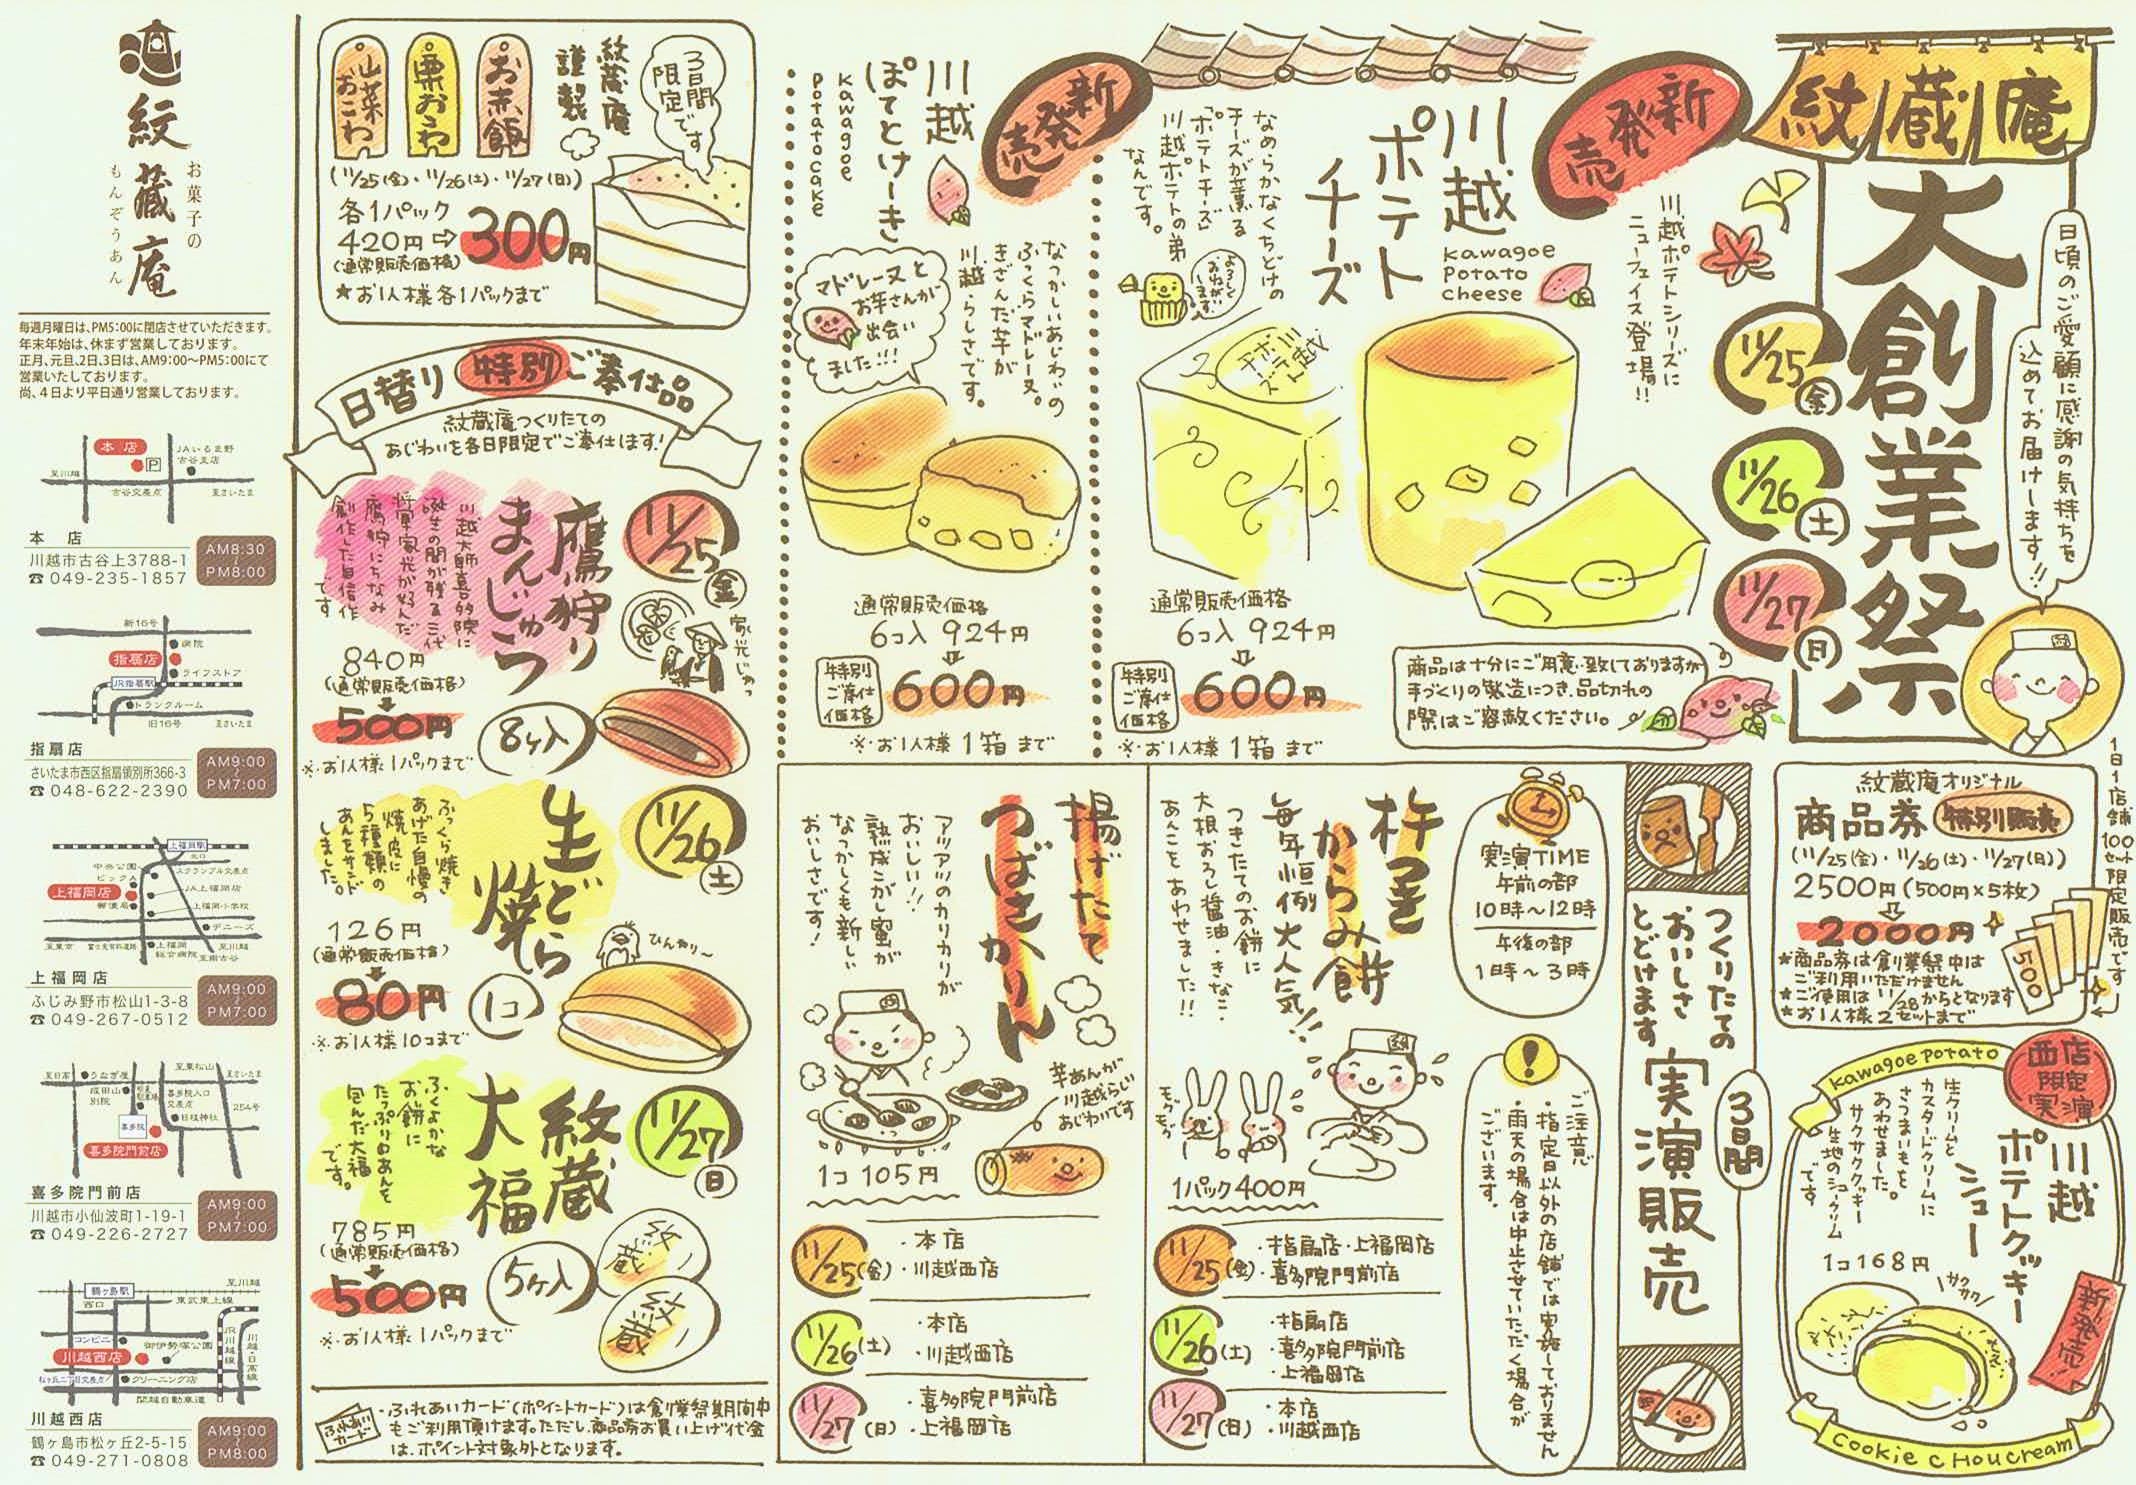 紋蔵庵
大創業祭
日頃のご愛顧に感謝の気持ちを
込めてお届けします!!
11/25 金
11/26 土
11/27 日
新発売
川越ポテトシリーズに
ニューフェイス登場!!
川越
ポテト
チーズ
kawagoe
potato
cheese
なめらかなくちどけの
チーズが薫る
「ポテトチーズ」
川越ポテトの弟
なんです。
よろしく
おねがい
します。
川越
ポテト
チーズ
通常販売価格
6コ入 924円
特別
ご奉仕
価格
600円
※お1人様 1箱 まで
商品は十分にご用意致しておりますが
手づくりの製造につき、品切れの
際はご容赦ください。
新発売
川越
ぽてとけーき
kawagoe
potatocake
なつかしいあじわいの
ふっくらマドレーヌ。
きざんだ芋が
川越らしさです。
マドレーヌと
お芋さんが
出会い
ました!!!
通常販売価格
6コ入 924円
特別
ご奉仕
価格
600円
※お1人様 1箱 まで
紋蔵庵オリジナル
商品券 特別販売
(11/25(金)・11/26(土)・11/27(日))
2500円(500円×5枚)
2000円
500
★商品券は創業祭中は
ご利用いただけません
★ご使用は11/28からとなります
★お1人様2セットまで
1日1店舗100セット限定販売です
kawagoe potato
西店
限定
実演
川越
ポテトクッキー
シュー
生クリームと
カスタードクリームに
さつまいもを
あわせました。
サクサククッキー
生地のシュークリーム
です
1コ168円
サクサク
新発売
cookie cHoucream
つくりたての
おいしさ
とどけます
3日間
実演販売
実演TIME
午前の部
10時〜12時
午後の部
1時〜3時
ご注意
・指定日以外の店舗では実施しておりません
・雨天の場合は中止させていただく場合が
ございます。
杵つき
からみ餅
毎年恒例大人気!!
つきたてのお餅に
大根おろし醤油・きなこ・
あんこをあわせました!!
モグモグ
1パック400円
11/25(金)
・指扇店・上福岡店
・喜多院門前店
11/26(土)
・指扇店
・喜多院門前店
・上福岡店
11/27(日)
・本店
・川越西店
揚げたて
つばさかりん
アツアツのカリカリが
おいしい!!
熟成こがし蜜が
なつかしくも新しい
おいしさです!
芋あんが
川越らしい
あじわいです
1コ 105円
11/25(金)
・本店
・川越西店
11/26(土)
・本店
・川越西店
11/27(日)
・喜多院門前店
・上福岡店
3日間
限定です
紋蔵庵
謹製
お赤飯
栗おこわ
山菜おこわ
(11/25(金)・11/26(土)・11/27(日))
各1パック
420円⇨300円
(通常販売価格)
★お1人様各1パックまで
日替り 特別 ご奉仕品
紋蔵庵つくりたての
あじわいを各日限定でご奉仕します!
11/25 金
鷹狩り
まんじゅう
川越大師喜多院に
誕生の間が残る三代
将軍家光が好んだ
鷹狩にちなみ
創作した自信作
です
840円
(通常販売価格)
500円
8ヶ入
※お1人様1パックまで
11/26 土
生どら
焼き
ふっくら焼き
あげた自慢の
焼皮に
5種類の
あんをサンド
しました。
ひんやり〜
126円
(通常販売価格)
80円
1コ
※お1人様10コまで
11/27 日
紋蔵
大福
ふくよかな
お餅に
たっぷりのあんを
包んだ大福
です。
785円
(通常販売価格)
500円
5ヶ入
紋蔵
紋蔵
※お1人様1パックまで
ふれあい
カード
・ふれあいカード(ポイントカード)は創業祭期間中
もご利用頂けます。ただし、商品券お買い上げ代金
は、ポイント対象外となります。
お菓子の
紋蔵庵
もんぞうあん
毎週月曜日は、PM5:00に閉店させていただきます。
年末年始は、休まず営業しております。
正月、元旦、2日、3日は、AM9:00〜PM5:00にて
営業いたしております。
尚、4日より平日通り営業しております。
本店
P
JAいるま野
古谷支店
至川越
古谷交差点
至さいたま
本 店
川越市古谷上3788-1
☎049-235-1857
AM8:30
〜
PM8:00
新16号
病院
指扇店
ライフストア
JR指扇駅
トランクルーム
旧16号
至さいたま
指扇店
さいたま市西区指扇領別所366-3
☎048-622-2390
AM9:00
〜
PM7:00
上福岡駅
北口
中央公園
スクランブル交差点
ビックA
JA上福岡店
上福岡店
郵便局
上福岡小学校
デニーズ
至東京
上福岡
総合病院
至川越
至南古谷
上福岡店
ふじみ野市松山1-3-8
☎049-267-0512
AM9:00
〜
PM7:00
至日高
うなぎ屋
至東松山
至さいたま
成田山
別院
喜多院入口
交差点
254号
日枝神社
喜多院
喜多院門前店
喜多院門前店
川越市小仙波町1-19-1
☎049-226-2727
AM9:00
〜
PM7:00
鶴ヶ島駅
至川越
西口
東武東上線
コンビニ
御伊勢塚公園
JR川越線
川越・日高線
川越西店
クリーニング店
関越自動車道
川越西店
鶴ヶ島市松ヶ丘2-5-15
☎049-271-0808
AM9:00
〜
PM8:00